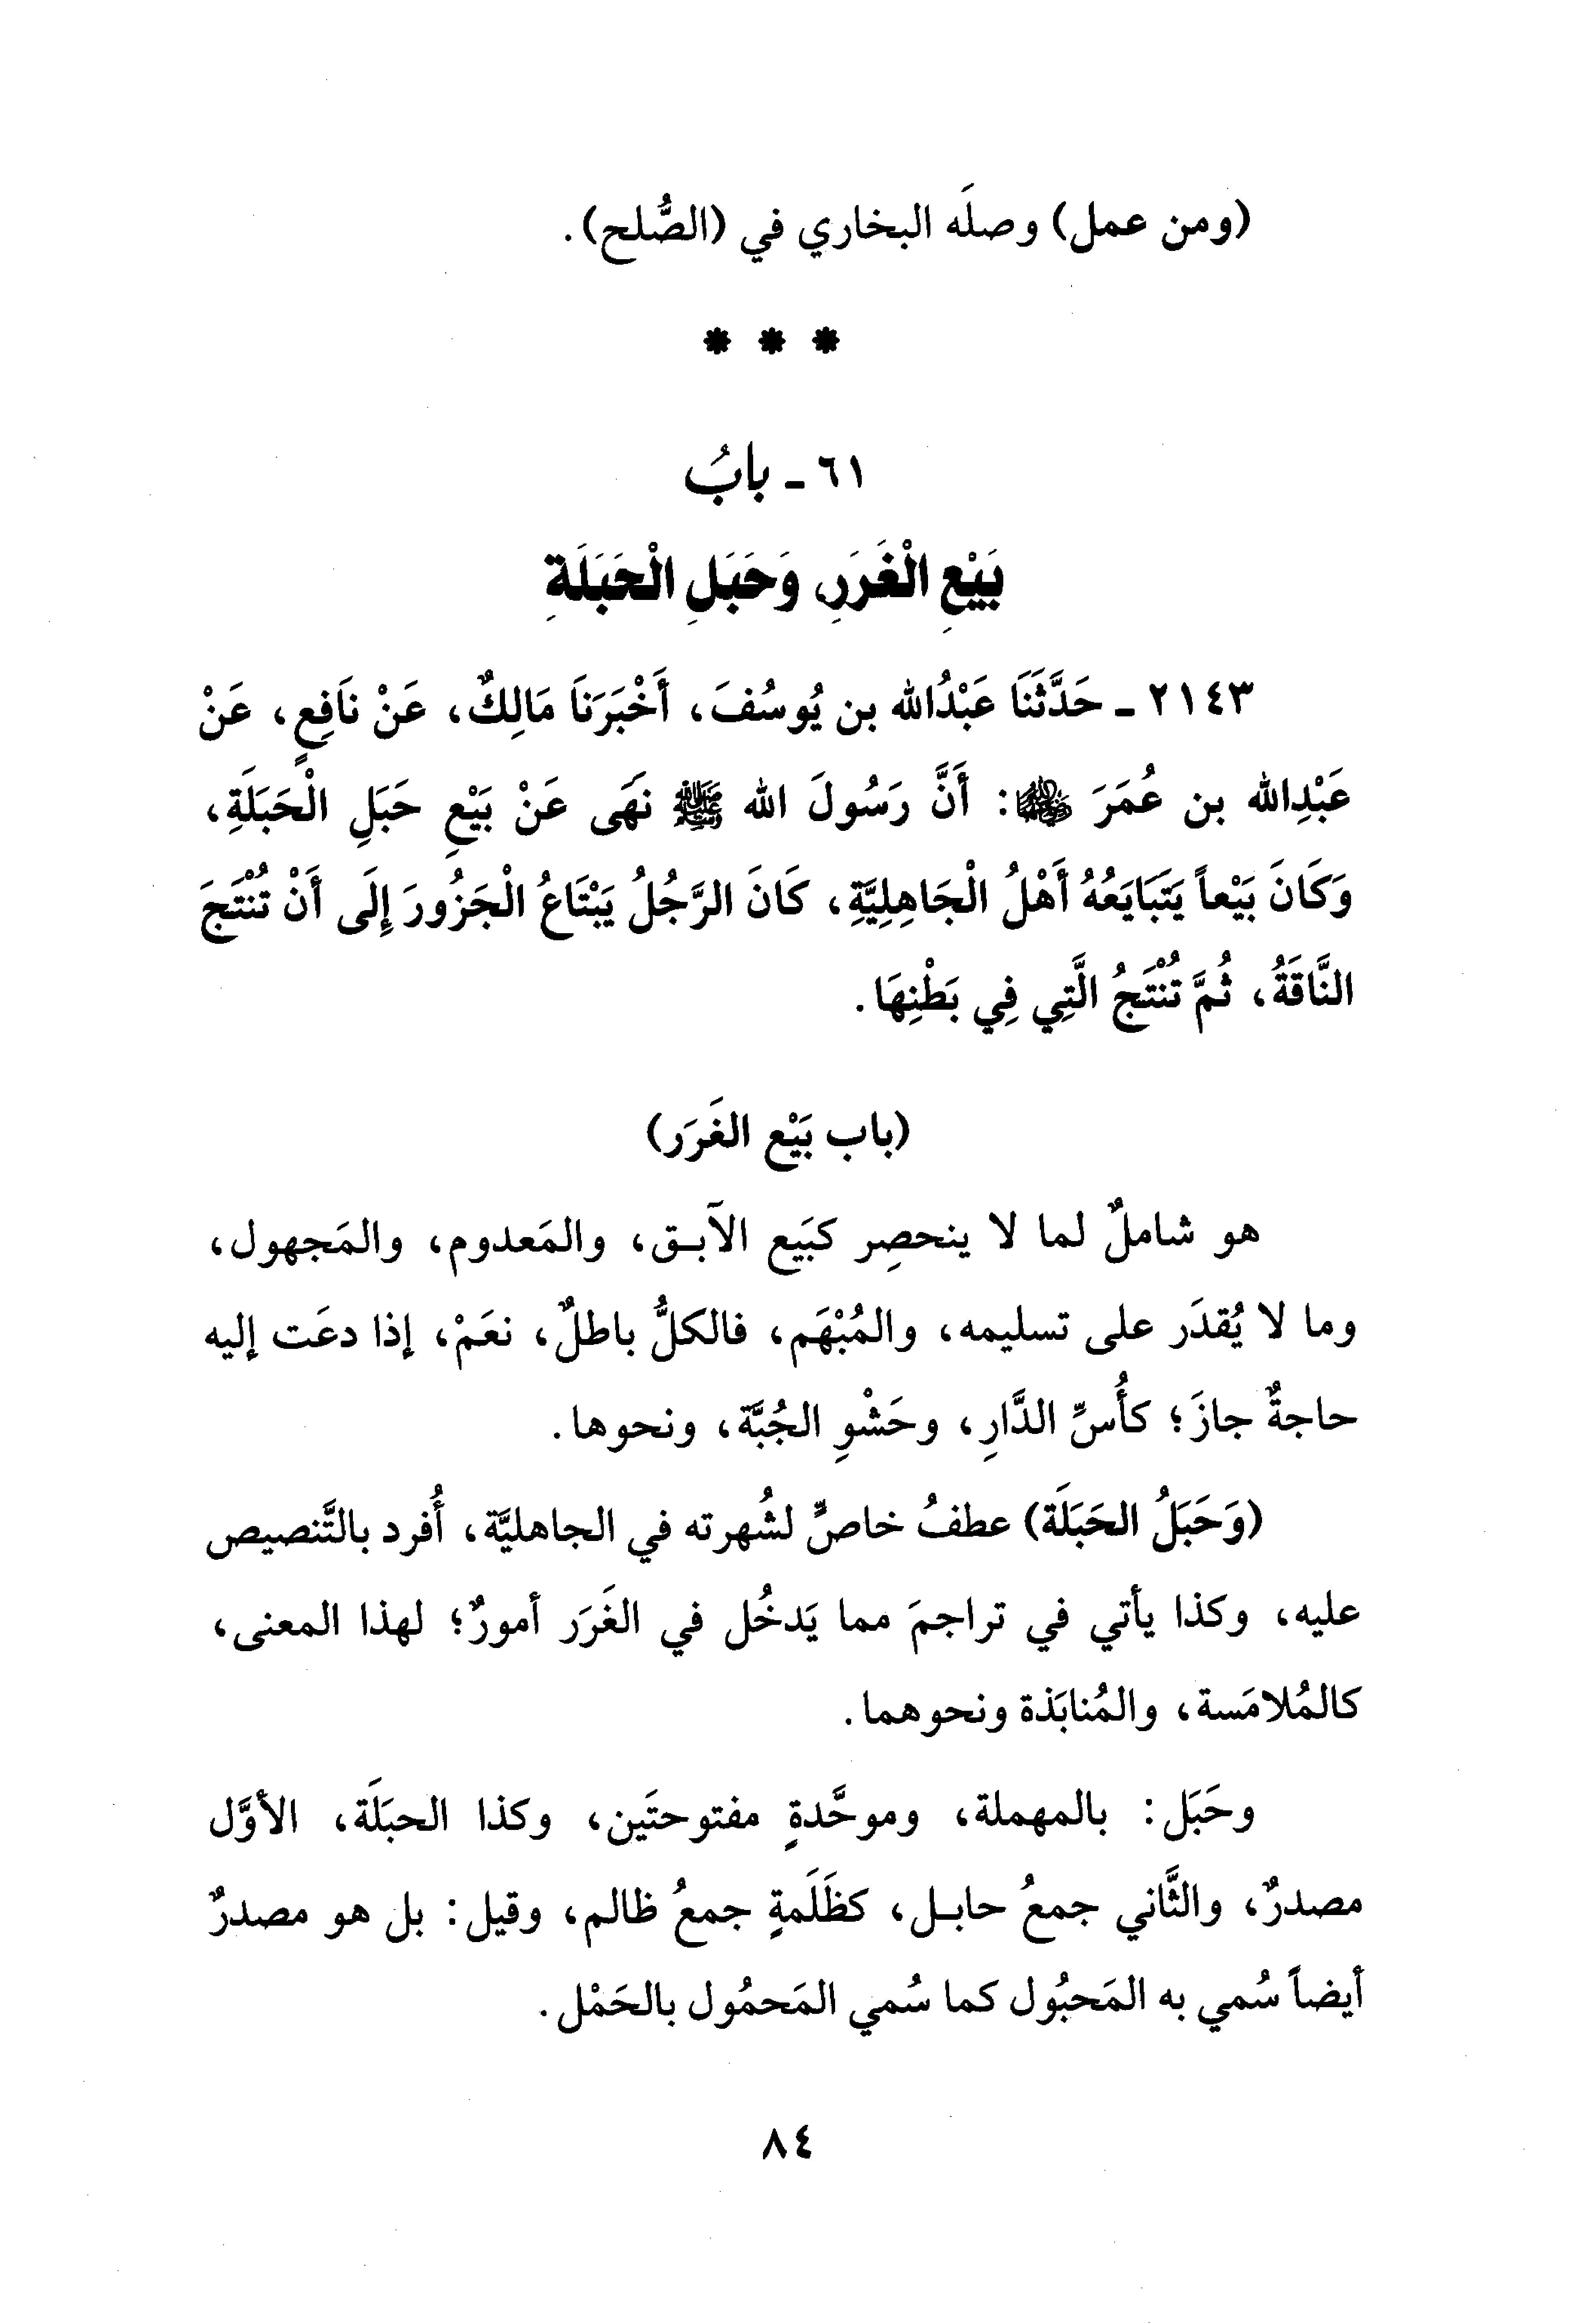 (ومن عمل) وصلَه البخاري في (الصُّلح).
* * *
٦١ ـ بابُ
بَيْعِ الْغَرَرِ، وَحَبَلِ الْحَبَلَةِ
٢١٤٣ ـ حَدَّثَنَا عَبْدُالله بن يُوسُفَ، أَخْبَرَنَا مَالِكٌ، عَنْ نَافِعٍ، عَنْ
عَبْدِالله بن عُمَرَ ﵄: أَنَّ رَسُولَ الله ﷺ نَهَى عَنْ بَيْعِ حَبَلِ الْحَبَلَةِ،
وَكَانَ بَيْعاً يَتَبَايَعُهُ أَهْلُ الْجَاهِلِيَّةِ، كَانَ الرَّجُلُ يَبْتَاعُ الْجَزُورَ إِلَى أَنْ تُنْتَجَ
النَّاقَةُ، ثُمَّ تُنْتَجُ الَّتِي فِي بَطْنِهَا.
(باب بَيْع الغَرَر)
هو شاملٌ لما لا ينحصِر كبَيع الآبق، والمَعدوم، والمَجهول،
وما لا يُقدَر على تسليمه، والمُبْهَم، فالكلُّ باطلٌ، نعَمْ، إذا دعَت إليه
حاجةٌ جازَ؛ كأُسِّ الدَّارِ، وحَشْوِ الجُبَّة، ونحوها.
(وَحَبَلُ الحَبَلَة) عطفُ خاصٍّ لشُهرته في الجاهليَّة، أُفرد بالتَّنصيص
عليه، وكذا يأتي في تراجمَ مما يَدخُل في الغَرَر أمورٌ؛ لهذا المعنى،
كالمُلامَسة، والمُنابَذة ونحوهما.
وحَبَل: بالمهملة، وموحَّدةٍ مفتوحتَين، وكذا الحبَلَة، الأوَّل
مصدرٌ، والثَّاني جمعُ حابل، كظَلَمةٍ جمعُ ظالم، وقيل: بل هو مصدرٌ
أيضاً سُمي به المَحبُول كما سُمي المَحمُول بالحَمْل.
٨٤